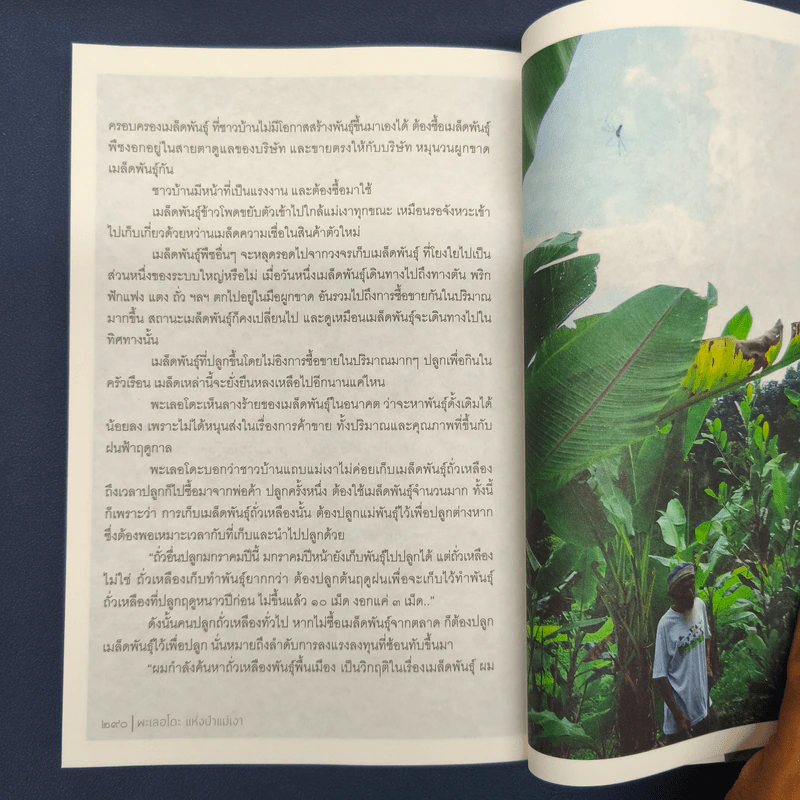 ครอบครองเมล็ดพันธุ์ ที่ชาวบ้านไม่มีโอกาสสร้างพันธุ์ขึ้นมาเองได้ ต้องซื้อเมล็ดพันธุ์
พืชงอกอยู่ในสายตาดูแลของบริษัท และขายตรงให้กับบริษัท หมุนวนผูกขาด
เมล็ดพันธุ์กัน
ชาวบ้านมีหน้าที่เป็นแรงงาน และต้องซื้อมาใช้
เมล็ดพันธุ์ข้าวโพดขยับตัวเข้าไปใกล้แม่เงาทุกขณะ เหมือนรอจังหวะเข้า
ไปเก็บเกี่ยวด้วยหว่านเมล็ดความเชื่อในสินค้าตัวใหม่
เมล็ดพันธุ์พืชอื่นๆ จะหลุดรอดไปจากวงจรเก็บเมล็ดพันธุ์ ที่โยงใยไปเป็น
ส่วนหนึ่งของระบบใหญ่หรือไม่ เมื่อวันหนึ่งเมล็ดพันธุ์เดินทางไปถึงทางตัน พริก
ฟักแฟง แตง ถั่ว ฯลฯ ตกไปอยู่ในมือผูกขาด อันรวมไปถึงการซื้อขายกันในปริมาณ
มากขึ้น สถานะเมล็ดพันธุ์ก็คงเปลี่ยนไป และดูเหมือนเมล็ดพันธุ์จะเดินทางไปใน
ทิศทางนั้น
เมล็ดพันธุ์ที่ปลูกขึ้นโดยไม่อิงการซื้อขายในปริมาณมากๆ ปลูกเพื่อกินใน
ครัวเรือน เมล็ดเหล่านี้จะยั่งยืนหลงเหลือไปอีกนานแค่ไหน
พะเลอโดะเห็นลางร้ายของเมล็ดพันธุ์ในอนาคต ว่าจะหาพันธุ์ดั้งเดิมได้
น้อยลง เพราะไม่ได้หนุนส่งในเรื่องการค้าขาย ทั้งปริมาณและคุณภาพที่ขึ้นกับ
ฝนฟ้าฤดูกาล
พะเลอโดะบอกว่าชาวบ้านแถบแม่เงาไม่ค่อยเก็บเมล็ดพันธุ์ถั่วเหลือง
ถึงเวลาปลูกก็ไปซื้อมาจากพ่อค้า ปลูกครั้งหนึ่ง ต้องใช้เมล็ดพันธุ์จำนวนมาก ทั้งนี้
ก็เพราะว่า การเก็บเมล็ดพันธุ์ถั่วเหลืองนั้น ต้องปลูกแม่พันธุ์ไว้เพื่อปลูกต่างหาก
ซึ่งต้องพอเหมาะเวลากับที่เก็บและนำไปปลูกด้วย
“ถั่วอื่นปลูกมกราคมปีนี้ มกราคมปีหน้ายังเก็บพันธุ์ไปปลูกได้ แต่ถั่วเหลือง
ไม่ใช่ ถั่วเหลืองเก็บทำพันธุ์ยากกว่า ต้องปลูกต้นฤดูฝนเพื่อจะเก็บไว้ทำพันธุ์
ถั่วเหลืองที่ปลูกฤดูหนาวปีก่อน ไม่ขึ้นแล้ว ๑๐ เม็ด งอกแค่ ๓ เม็ด..”
ดังนั้นคนปลูกถั่วเหลืองทั่วไป หากไม่ซื้อเมล็ดพันธุ์จากตลาด ก็ต้องปลูก
เมล็ดพันธุ์ไว้เพื่อปลูก นั่นหมายถึงลำดับการลงแรงลงทุนที่ซ้อนทับขึ้นมา
“ผมกำลังค้นหาถั่วเหลืองพันธุ์พื้นเมือง เป็นวิกฤติในเรื่องเมล็ดพันธุ์ ผม
๒๙๐ | พะเลอโดะ แห่งป่าแม่เงา